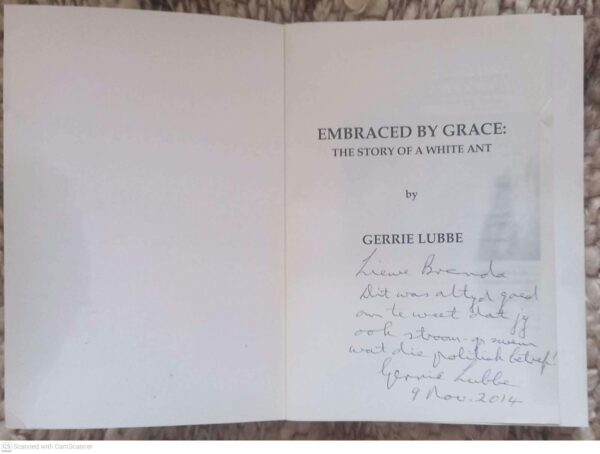 EMBRACED BY GRACE:
THE STORY OF A WHITE ANT
by
GERRIE LUBBE
Liewe Brenda
Dit was altyd goed
om te weet dat jy
ook stroom-op swem
wat die politiek betref!
Gerrie Lubbe
9 Nov. 2014
CS Scanned with CamScanner